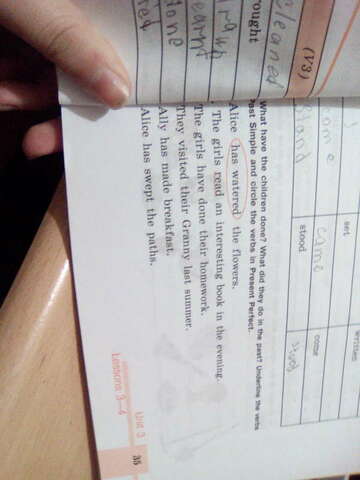 (V3)
cleaned
rought
drawn
learnt
done
set
written
came
stood
come
What have the children done? What did they do in the past? Underline the verbs
Past Simple and circle the verbs in Present Perfect.
Alice has watered the flowers.
The girls read an interesting book in the evening.
The girls have done their homework.
They visited their Granny last summer.
Ally has made breakfast.
Alice has swept the paths.
Unit 3
Lessons 3–4
35